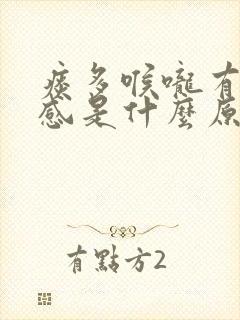 痰多喉嚨有
感是什麼原
有點方2